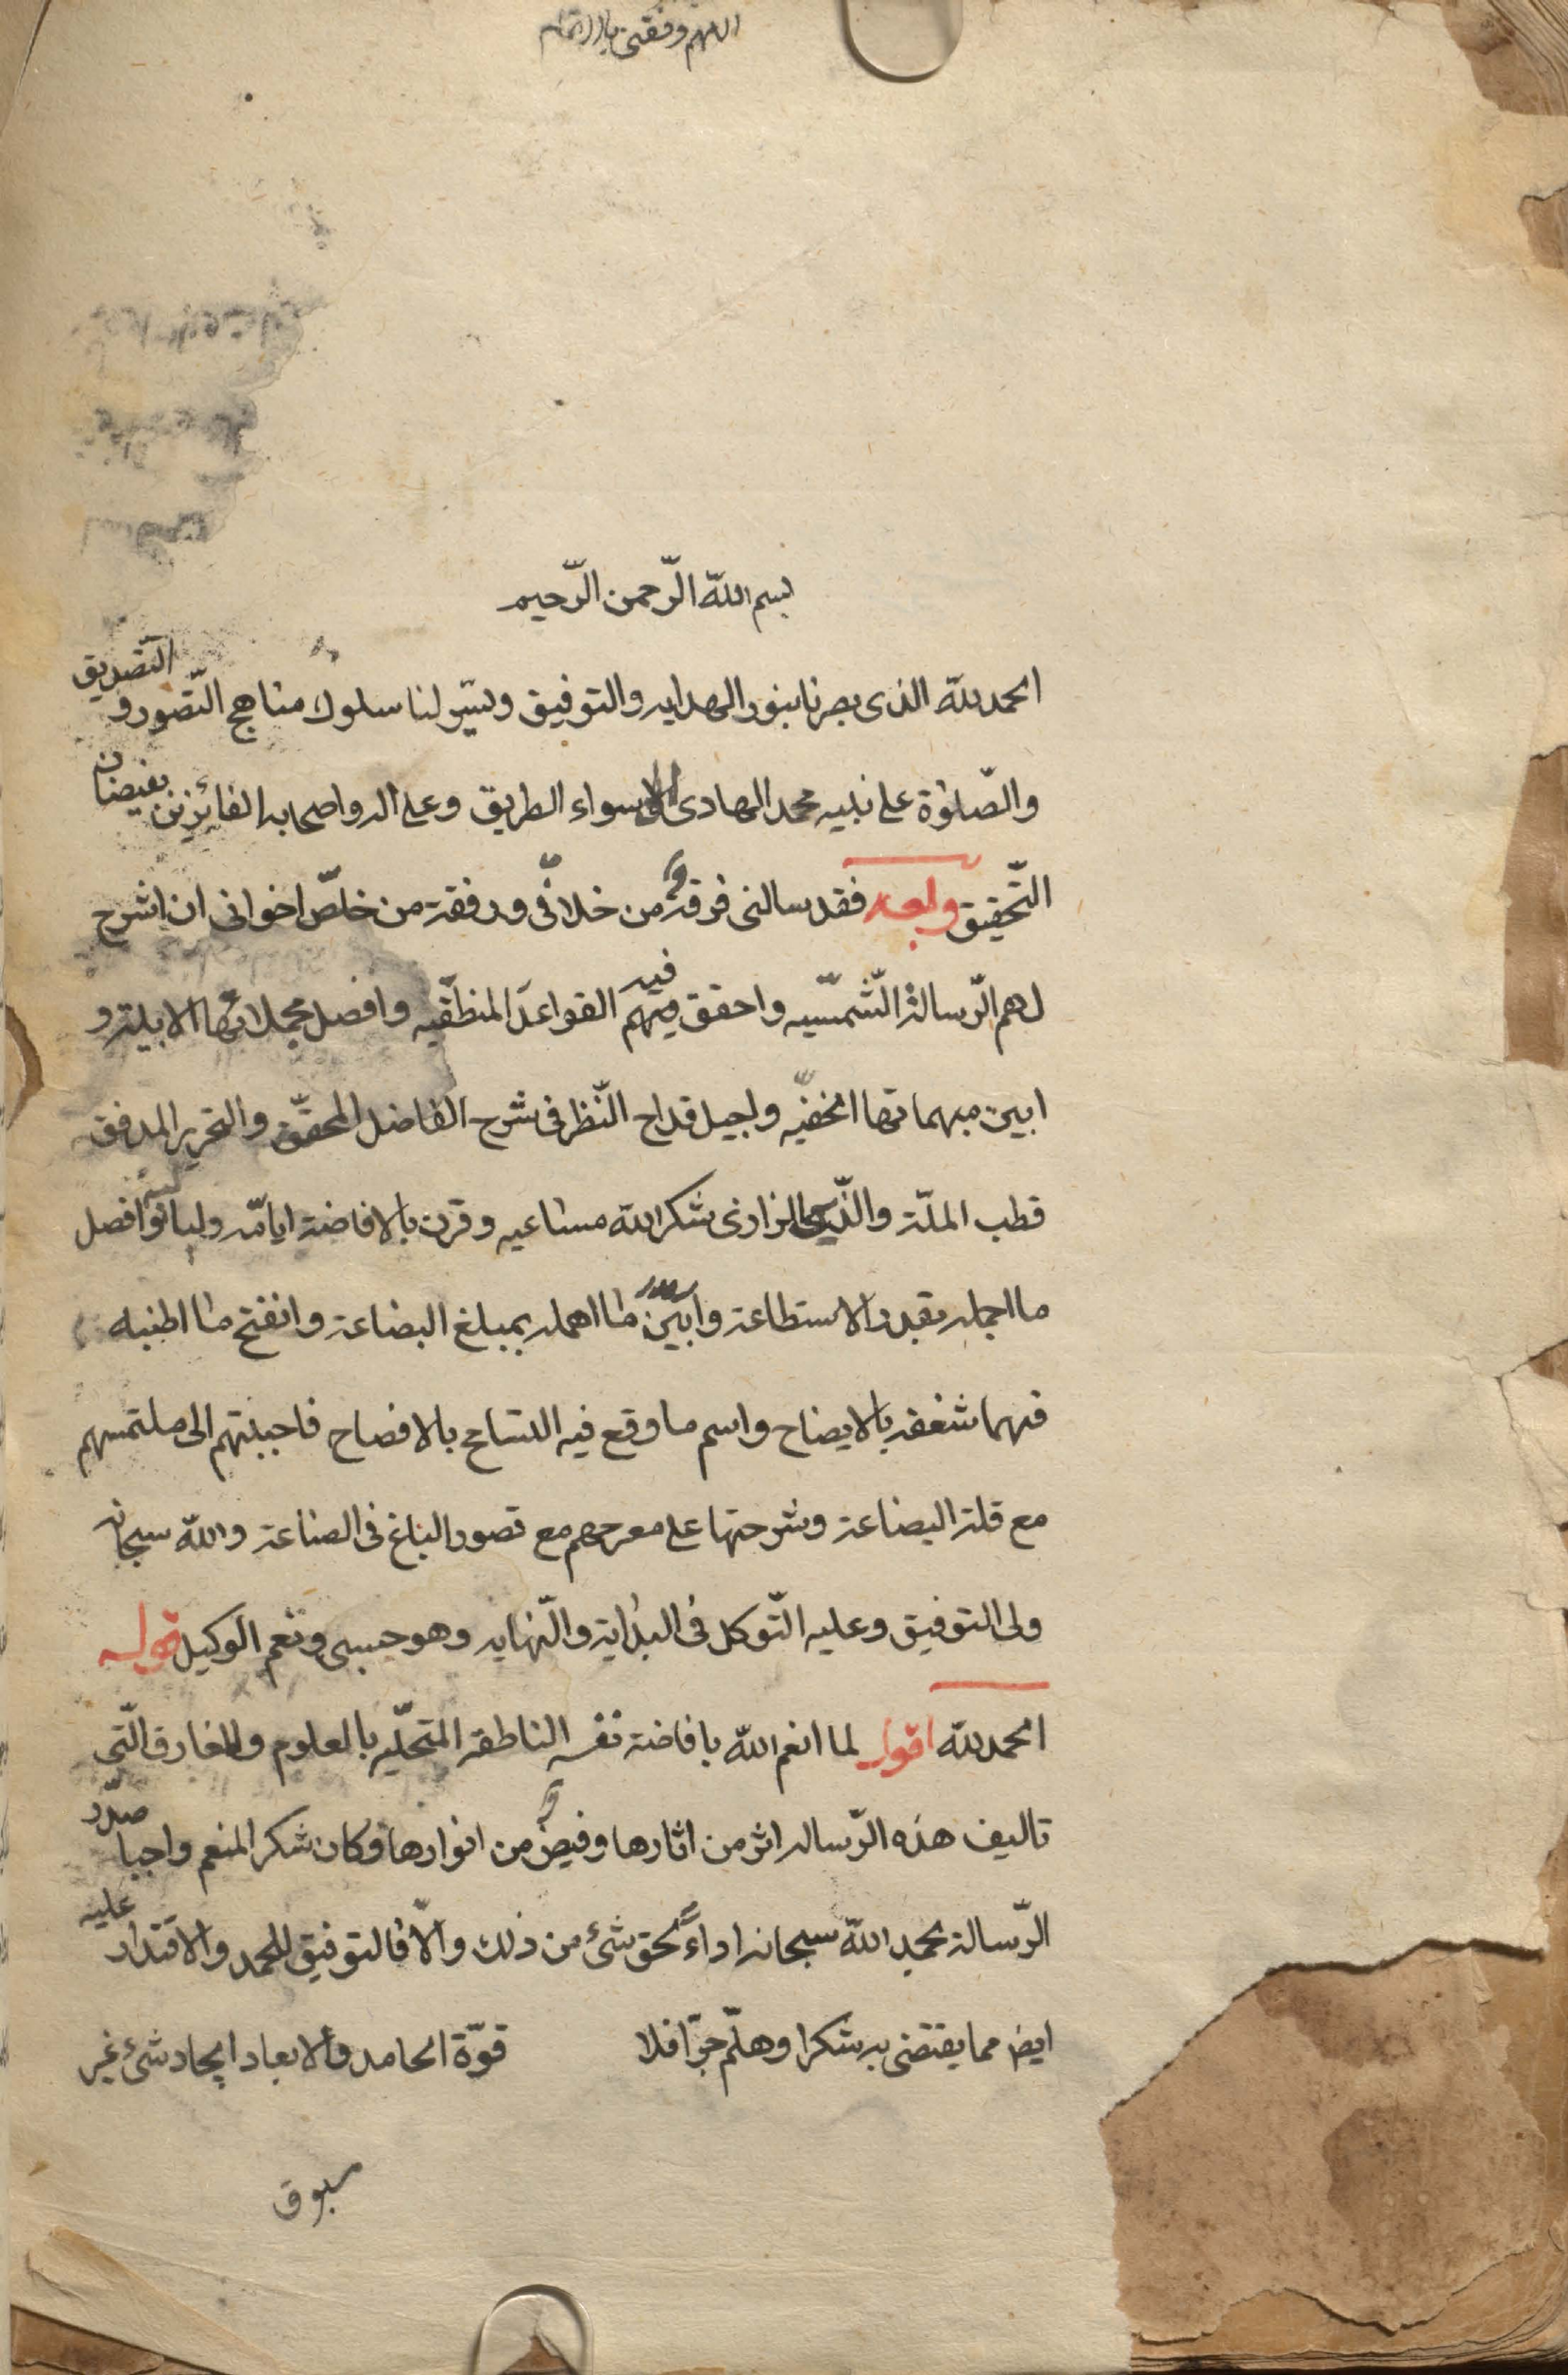 اللهم وفقنى بالاتمام
بسم الله الرّحمن الرّحيم
الحمد لله الذى بصرنا بنور الهدايه والتوفيق ويسّر لنا سلوك مناهج التّصور و التّصديق
والصّلوٰة على نبيه محمد الهادى الى سواء الطريق وعلى اله واصحابه الفائزين بفيضان
التّحقيق وبعد فقد سالنى فرقة من خلّانى ورفقة من خلّص اخوانى ان اشرح
لهم الرّسالة الشّمسّيه واحقق فيه القواعد المنطقّيه وافصل مجملاتها الابيلة و
ابين مبهماتها الخفيّه واجيل قداح النّظر فى شرح الفاضل المحقّق والنحرير المدقق
قطب الملّة والدّين الرازى شكر الله مساعيه وقرن بالافاضة ايامّه ولياليه وافصل
ما اجمله بقدر الاستطاعة وابيّن ما اهمله بمبلغ البضاعة وانفتح ما اطنبه
فهما شغفه بالايضاح واسم ما وقع فيه التسامح بالافصاح فاجبتهم الى ملتمسهم
مع قلة البضاعة وشرحتها على مقرحهم مع قصور الباع فى الصناعة والله سبحانه
ولى التوفيق وعليه التّوكل فى البداية والنّهايه وهو حسبى ونعم الوكيل قوله
الحمد لله اقول لما انعم الله بافاضة نفسه الناطقة المتحلّيه بالعلوم والمعارف الّتى
تاليف هذه الرّساله اثر من اثارها وفيض من انوارها وكان شكر المنعم واجبا صدّر
الرّسالة بحمد الله سبحانه اداءً لحق شئ من ذلك والّا فالتوفيق للحمد والاقتدار عليه
ايض مما يقتضى به شكرا وهلّم جرّا فلا قوّة الحامد والابعاد ايجاد شئ غير
مسبوق